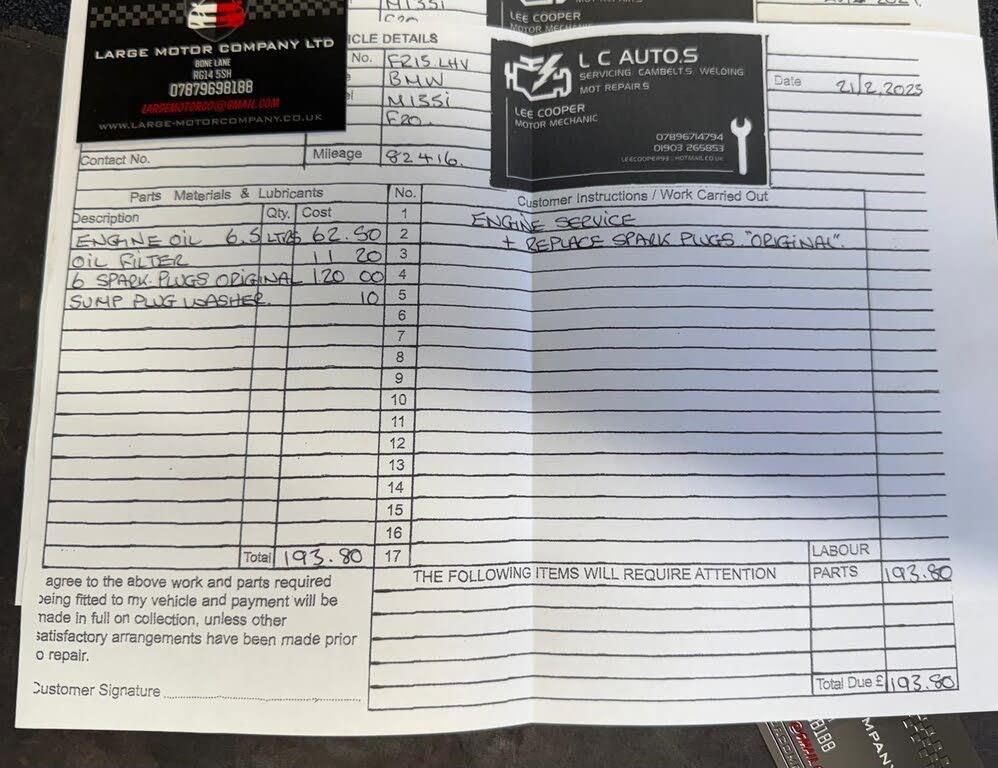 LARGE MOTOR COMPANY LTD
BONE LANE
RG14 5SH
07879698188
LARGEMOTORCO@GMAIL.COM
WWW.LARGE-MOTORCOMPANY.CO.UK
M135i
LEE COOPER
MOTOR MECHANIC
L C AUTO.S
SERVICING. CAMBELT.S. WELDING
MOT REPAIR.S
LEE COOPER
MOTOR MECHANIC
07896714794
01903 265853
ICLE DETAILS
No. F215.LHV
BMW
M135i
F20.
Date 21/2,2025
Contact No.
Mileage 82416.
Parts Materials & Lubricants
No.
Customer Instructions / Work Carried Out
Description Qty. Cost
1 ENGINE SERVICE
ENGINE OIL 6.5 LTRS 62.50 2 + REPLACE SPARK PLUGS. "ORIGINAL".
OIL FILTER 11 20 3
6 SPARK PLUGS ORIGINAL 120 00 4
SUMP PLUG WASHER. 10 5
6
7
8
9
10
11
12
13
14
15
16
Total 193.80 17
LABOUR
THE FOLLOWING ITEMS WILL REQUIRE ATTENTION
PARTS 193.80
agree to the above work and parts required
being fitted to my vehicle and payment will be
made in full on collection, unless other
satisfactory arrangements have been made prior
o repair.
Customer Signature
Total Due £ 193.80
8188
MPANY